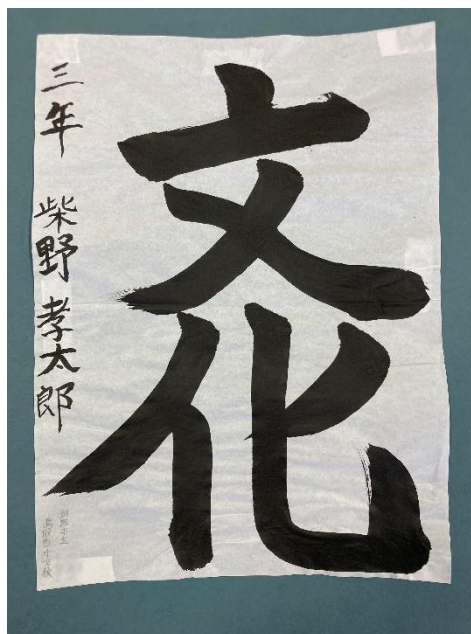 文化
三年 柴野孝太郎